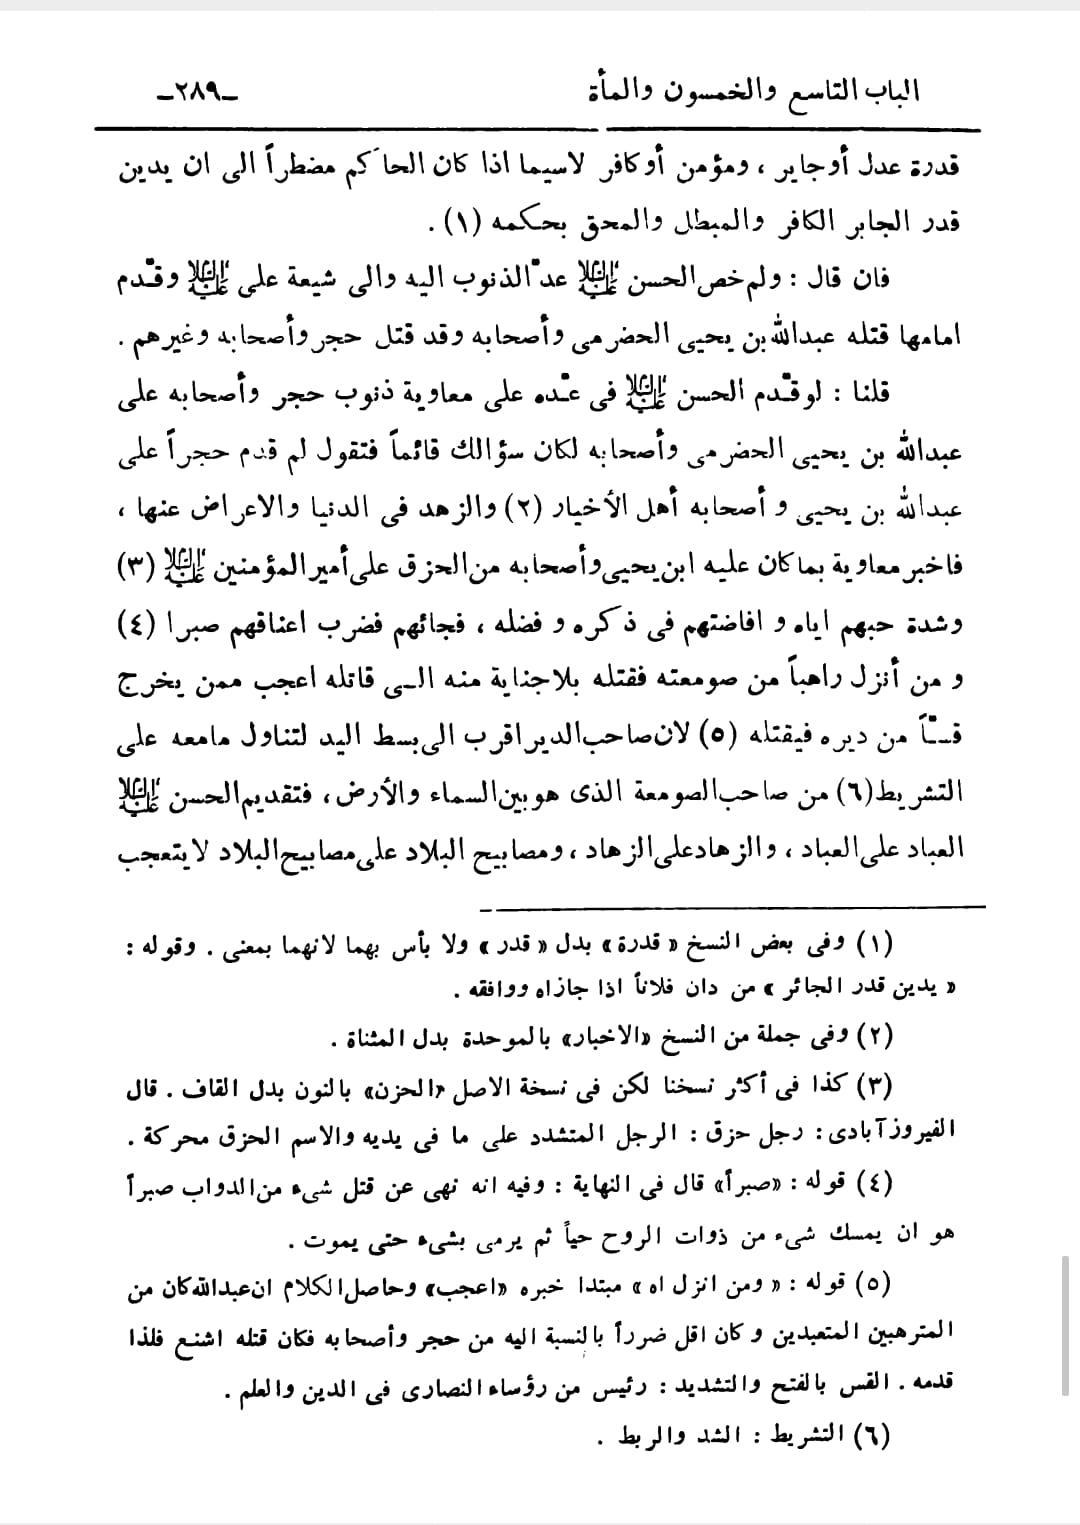 الباب التاسع والخمسون والمأة
ـ٢٨٩ـ
قدرة عدل أوجاير ، ومؤمن أوكافر لاسيما اذا كان الحاكم مضطراً الى ان يدين
قدر الجابر الكافر والمبطل والمحق بحكمه (١) .
فان قال : ولم خص الحسن عليه السلام عدّ الذنوب اليه والى شيعة على عليه السلام وقدّم
امامها قتله عبدالله بن يحيى الحضرمى وأصحابه وقد قتل حجر وأصحابه وغيرهم .
قلنا : لو قدّم الحسن عليه السلام فى عدّه على معاوية ذنوب حجر وأصحابه على
عبدالله بن يحيى الحضرمى وأصحابه لكان سؤالك قائماً فتقول لم قدم حجراً على
عبدالله بن يحيى و أصحابه أهل الأخيار (٢) والزهد فى الدنيا والاعراض عنها ،
فاخبر معاوية بماكان عليه ابن يحيى وأصحابه من الحزق على أمير المؤمنين عليه السلام (٣)
وشدة حبهم اياه و افاضتهم فى ذكره و فضله ، فجائهم فضرب اعناقهم صبرا (٤)
و من أنزل راهباً من صومعته فقتله بلاجناية منه الـى قاتله اعجب ممن يخرج
قـسّاً من ديره فيقتله (٥) لان صاحب الدير اقرب الى بسط اليد لتناول مامعه على
التشريط (٦) من صاحب الصومعة الذى هو بين السماء والأرض ، فتقديم الحسن عليه السلام
العباد على العباد ، والزهاد على الزهاد ، ومصابيح البلاد على مصابيح البلاد لا يتعجب
(١) وفى بعض النسخ « قدرة» بدل « قدر » ولا بأس بهما لانهما بمعنى . وقوله :
« يدين قدر الجائر » من دان فلاناً اذا جازاه ووافقه .
(٢) وفى جملة من النسخ «الاخبار» بالموحدة بدل المثناة .
(٣) كذا فى أكثر نسخنا لكن فى نسخة الاصل «الحزن» بالنون بدل القاف . قال
الفيروزآبادى : رجل حزق : الرجل المتشدد على ما فى يديه والاسم الحزق محركة .
(٤) قوله : «صبراً» قال فى النهاية : وفيه انه نهى عن قتل شىء من الدواب صبراً
هو ان يمسك شىء من ذوات الروح حياً ثم يرمى بشىء حتى يموت .
(٥) قوله : « ومن انزل اه » مبتدا خبره «اعجب» وحاصل الكلام ان عبدالله كان من
المترهبين المتعبدين و كان اقل ضرراً بالنسبة اليه من حجر وأصحابه فكان قتله اشنع فلذا
قدمه . القس بالفتح والتشديد : رئيس من رؤساء النصارى فى الدين والعلم .
(٦) التشريط : الشد والربط .